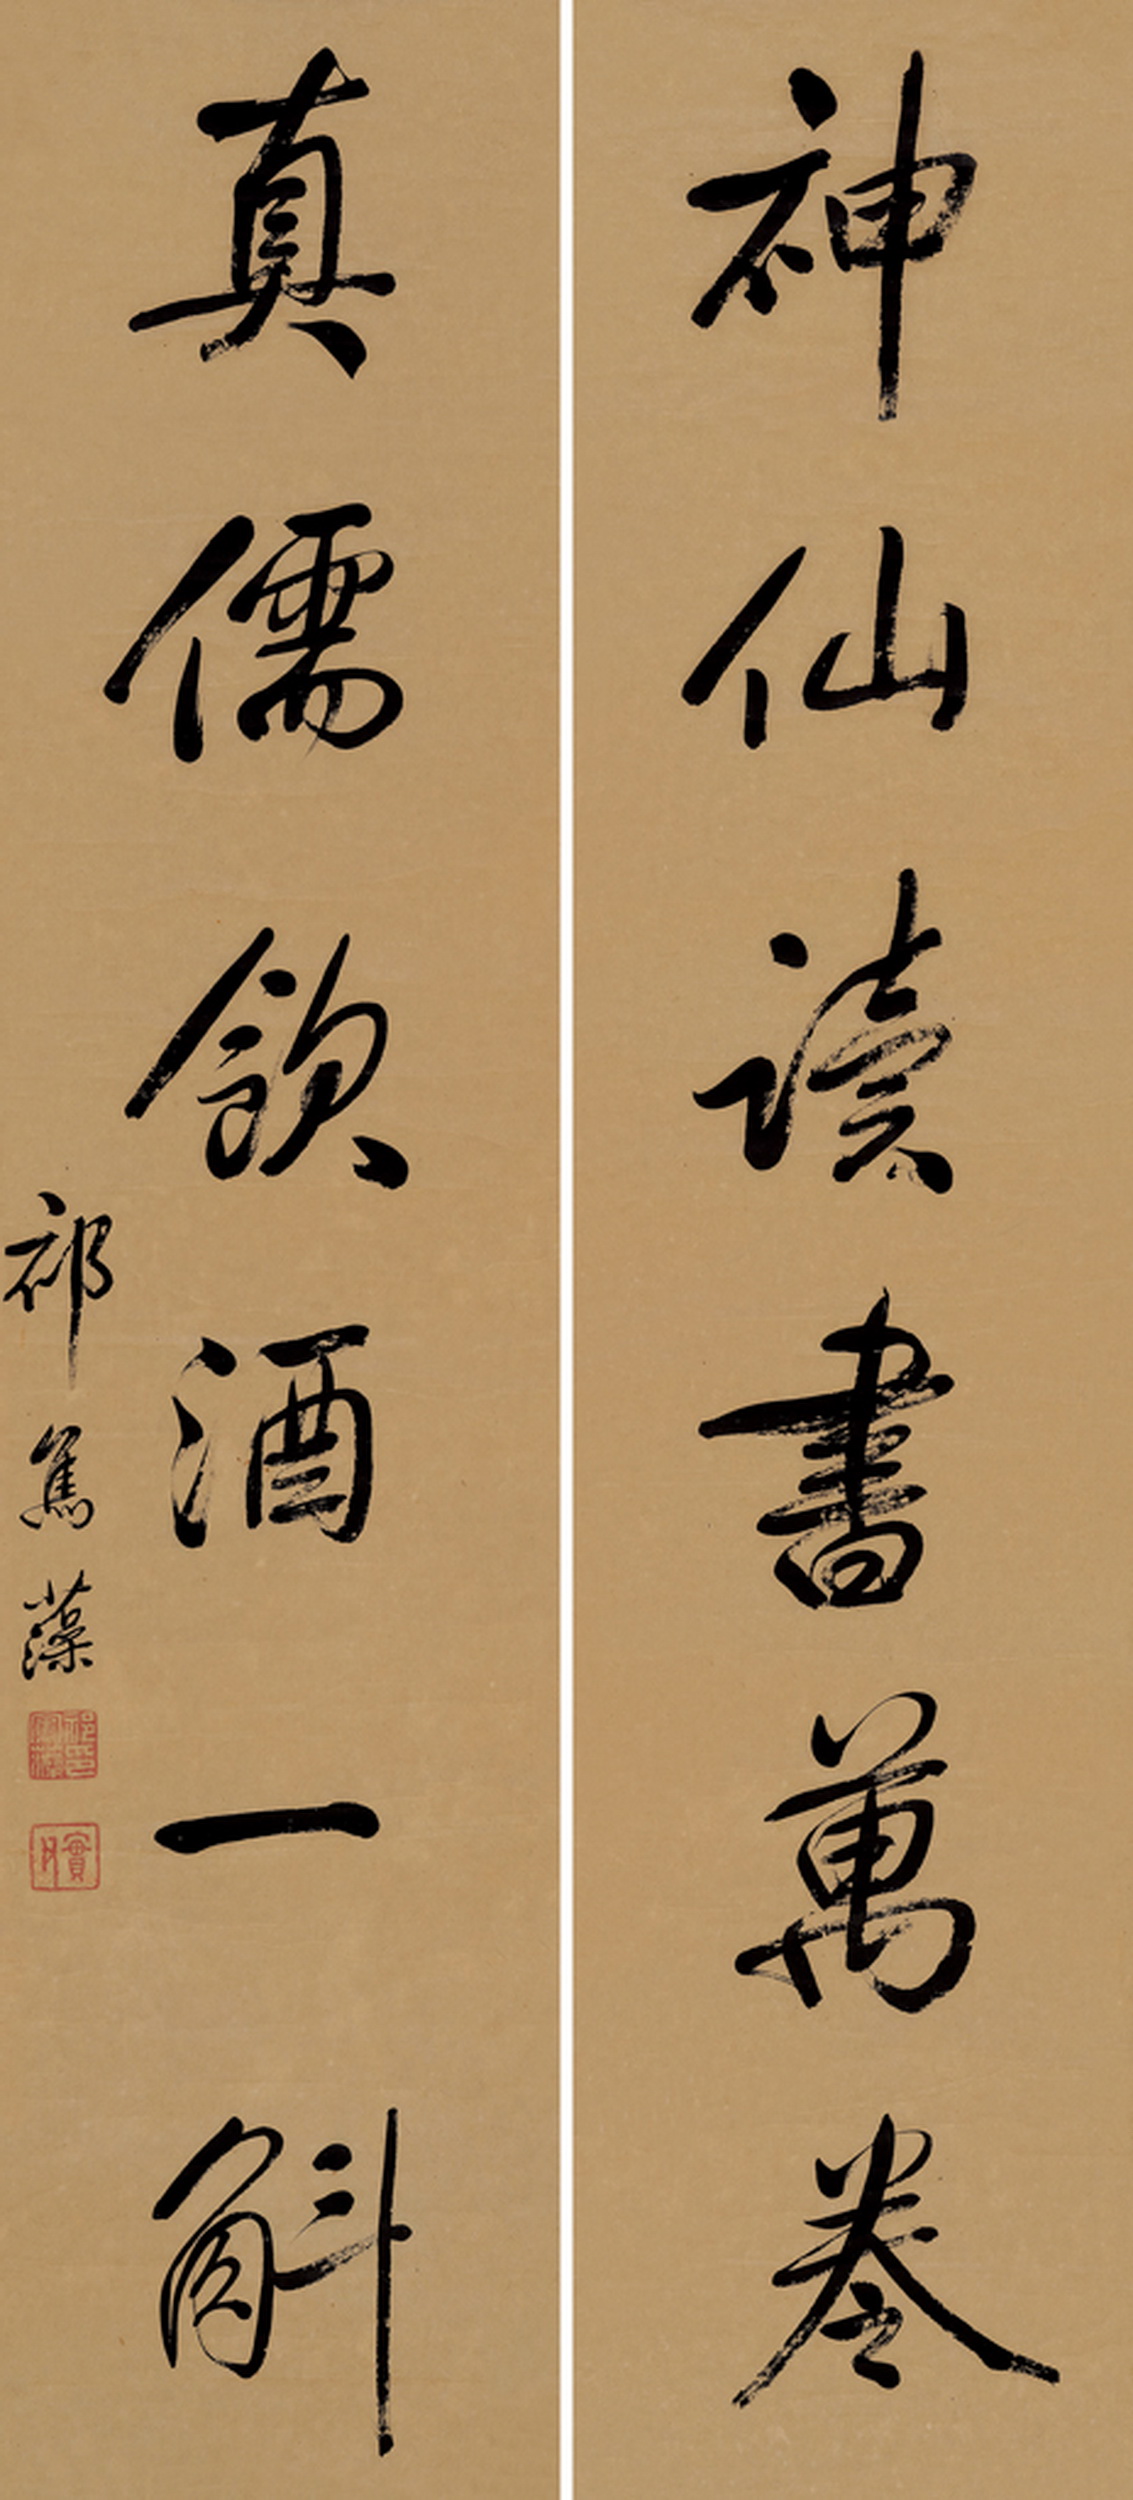 神仙讀書萬卷
真儒飲酒一斛
祁寯藻